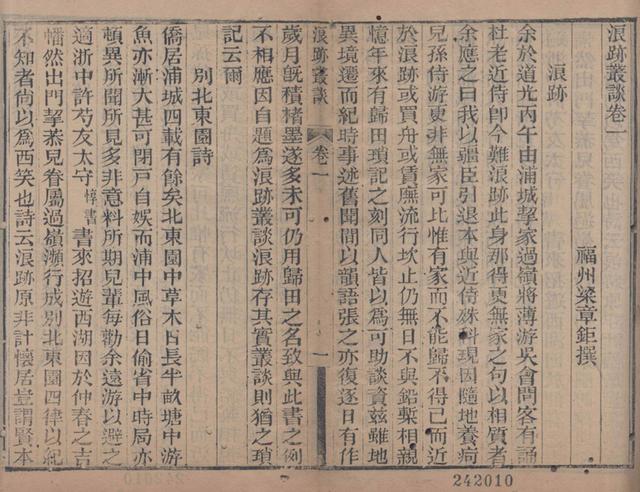 浪跡叢談卷一
福州梁章鉅撰
浪跡
余於道光丙午由浦城挈家過嶺將薄游吳會問客有誦
杜老近侍卽今難浪跡此身那得更無家之句以相質者
余應之曰我以疆臣引退本與近侍殊科現因隨地養疴
兒孫侍游更非無家可比惟有家而不能歸不得已而近
於浪跡或買舟或賃廡流行坎止仍無日不與鉛槧相親
憶年來有歸田瑣記之刻同人皆以爲可助談資茲雖地
異境遷而紀時事述舊聞間以韻語張之亦復逐日有作
浪跡叢談
卷一
一
歲月旣積楮墨遂多未可仍用歸田之名致與此書之例
不相應因自題爲浪跡叢談浪跡存其實叢談則猶之瑣
記云爾
別北東園詩
僑居浦城四載有餘矣北東園中草木日長半畝塘中游
魚亦漸大甚可閉戶自娛而浦中風俗日偷省中時局亦
頓異所聞所見多非意料所期兒輩每勸余遠游以避之
適浙中許芍友太守
惇書
書來招遊西湖因於仲春之吉
幡然出門挈菾兒眷屬過嶺瀕行成別北東園四律以紀
不知者尙以爲西笑也詩云浪跡原非計懷居豈謂賢本
242010